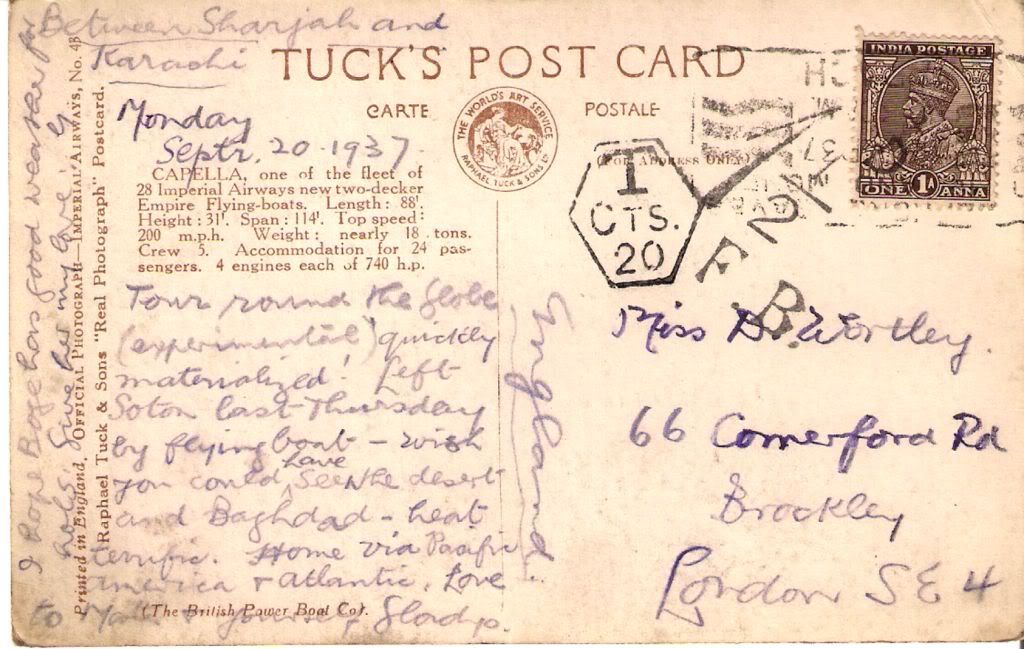 Between Sharjah and
Karachi
TUCK'S POST CARD
CARTE POSTALE
(FOR ADDRESS ONLY)
THE WORLD'S ART SERVICE
RAPHAEL TUCK & SONS LTD
INDIA POSTAGE
ONE 1A ANNA
T
CTS.
20
F.B.
Monday
Septr. 20. 1937.
CAPELLA, one of the fleet of
28 Imperial Airways new two-decker
Empire Flying-boats. Length: 88'.
Height: 31'. Span: 114'. Top speed:
200 m.p.h. Weight: nearly 18 tons.
Crew 5. Accommodation for 24 pas-
sengers. 4 engines each of 740 h.p.
Tour round the Globe
(experimental) quickly
materialized! Left
Soton last Thursday
by flying boat - wish
you could have seen the desert
and Baghdad - heat
terrific. Home via Pacific
America & Atlantic. Love
to & yourself, Gladys.
(The British Power Boat Co).
I hope has good weather for
hols. Give her my love. G
Printed in England. OFFICIAL PHOTOGRAPH—IMPERIAL AIRWAYS, No. 4B
Raphael Tuck & Sons "Real Photograph" Postcard.
England
Miss D. Wortley.
66 Comerford Rd
Brockley
London SE 4